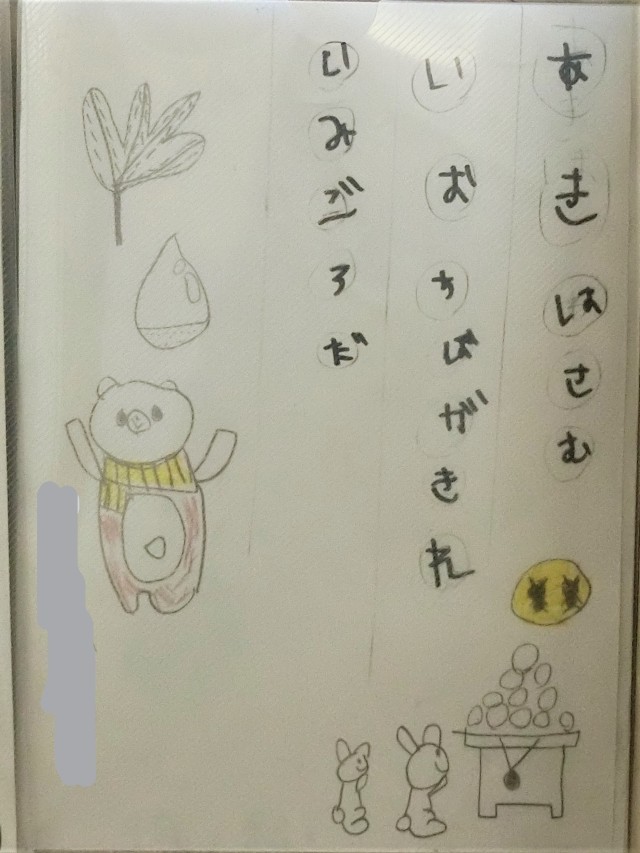 あきはさむ
いおちばがきれ
いみごろだ